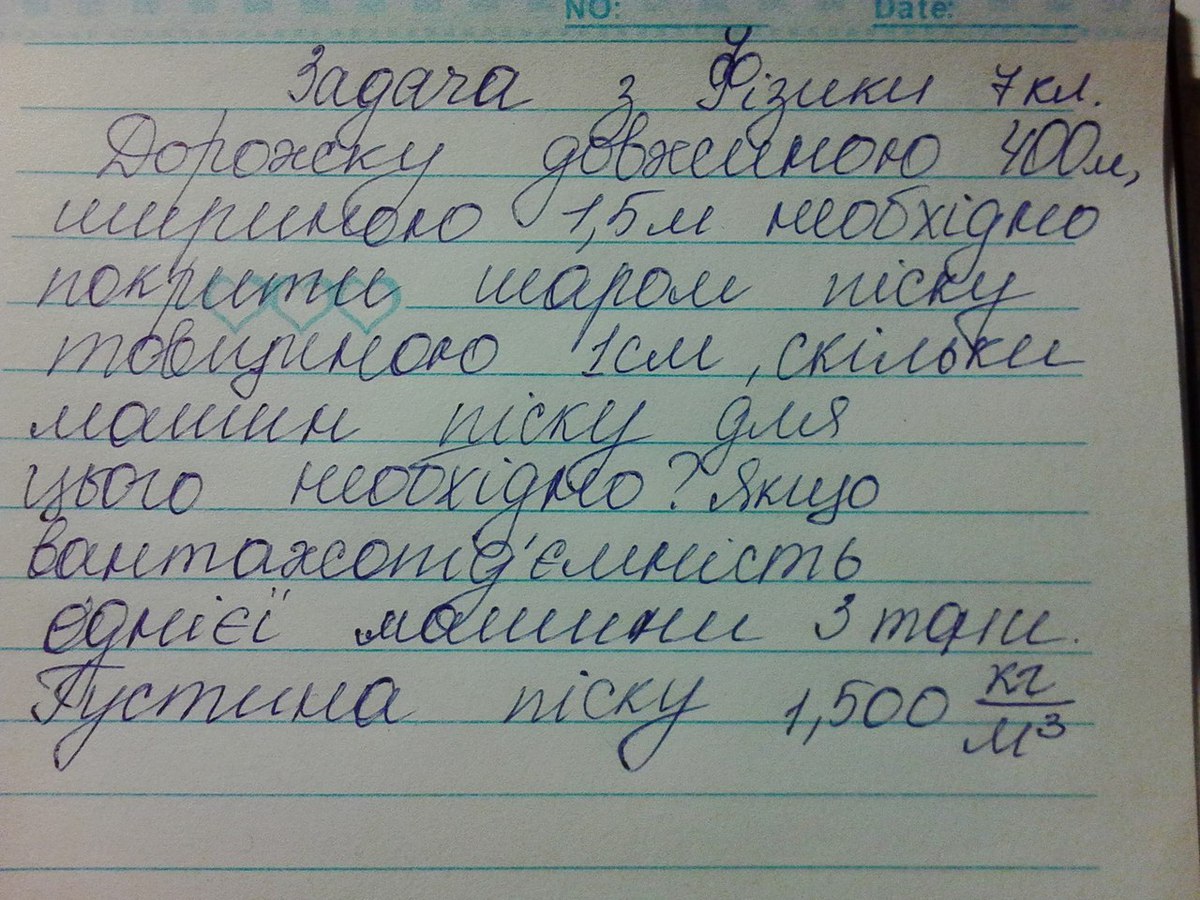 NO: Date:
Задача з Фізики 7 кл.
Дорожку довжиною 400м,
шириною 1,5м необхідно
покрити шаром піску
товщиною 1см, скільки
машин піску для
цього необхідно? Якщо
вантажопід'ємність
однієї машини 3 тони.
Густина піску 1,500 кг/м³